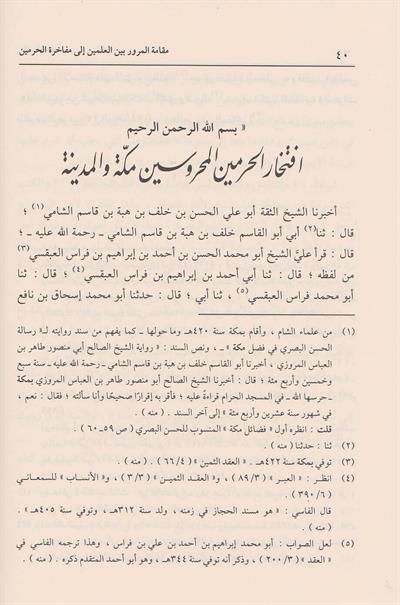 ٤٠
مقامة المرور بين العلمين إلى مفاخرة الحرمين
« بسم الله الرحمن الرحيم
افتخار الحرمين المحروسين مكة والمدينة
أخبرنا الشيخ الثقة أبو علي الحسن بن خلف بن هبة بن قاسم الشامي(١) ؛
قال : ثنا(٢) أبي أبو القاسم خلف بن هبة بن قاسم الشامي ـ رحمة الله عليه ـ ؛
قال : قرأ عليَّ الشيخ أبو محمد الحسن بن أحمد بن إبراهيم بن فراس العبقسي(٣)
من لفظه ؛ قال : ثنا أبي أحمد بن إبراهيم بن فراس العبقسي(٤) ؛ قال : ثنا
أبو محمد فراس العبقسي(٥) ، ثنا أبي ؛ قال : حدثنا أبو محمد إسحاق بن نافع
(١) من علماء الشام ، وأقام بمكة سنة ٤٢٠هـ وما حولها ـ كما يفهم من سند روايته لـ« رسالة
الحسن البصري في فضل مكة » ـ ، ونص السند : « رواية الشيخ الصالح أبي منصور طاهر بن
العباس المروزي ، أخبرنا أبو القاسم خلف بن هبة بن قاسم الشامي ـ رحمة الله عليه ـ سنة سبع
وخمسين وأربع مئة ؛ قال : أخبرنا الشيخ الصالح أبو منصور طاهر بن العباس المروزي بمكة
ـ حرسها الله ـ في المسجد الحرام قراءة عليه ؛ فأقر به إقرارًا صحيحًا وأنا سألته ؛ فقال : نعم ،
في شهور سنة عشرين وأربع مئة » إلى آخر السند . ( منه ) .
قلت : انظره أول « فضائل مكة » المنسوب للحسن البصري ( ص ٥٩ـ٦٠ ) .
(٢) ثنا : حدثنا ( منه ) .
(٣) توفي بمكة سنة ٤٢٢هـ . « العقد الثمين » ( ٦٦/٤ ) . ( منه ) .
(٤) انظر : « العبر » ( ٨٩/٣ ) ، و« العقد الثمين » ( ٣/٣ ) ، و« الأنساب » للسمعاني
( ٣٩٠/٦ ) .
قال الفاسي : « هو مسند الحجاز في زمنه ، ولد سنة ٣١٢هـ ، وتوفي سنة ٤٠٥هـ » .
( منه ) .
(٥) لعل الصواب : أبو محمد إبراهيم بن أحمد بن علي بن فراس ، وهذا ترجمه الفاسي في
« العقد » ( ٢٠٠/٣ ) ، وذكر أنه توفي سنة ٣٤٤هـ ، وهو أبو أحمد المتقدم ذكره » . ( منه ) .